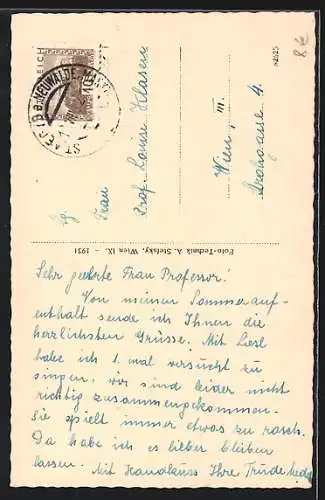 8€
ST. AEGYD A. NEUWALDE
REICH
Frau
Prof. Louise Klasen
Wien III.
4.
62625
Foto-Technik A. Stefsky, Wien IX. - 1931
Sehr geehrte Frau Professor!
Von meinen Sommerauf-
enthalt sende ich Ihnen die
herzlichsten Grüsse. Mit Liesl
habe ich 1. mal versucht zu
singen, wir sind leider nicht
richtig zusammengekommen.
Sie spielt immer etwas zu rasch.
Da habe ich es lieber bleiben
lassen. Mit Handkuss Ihre Trude